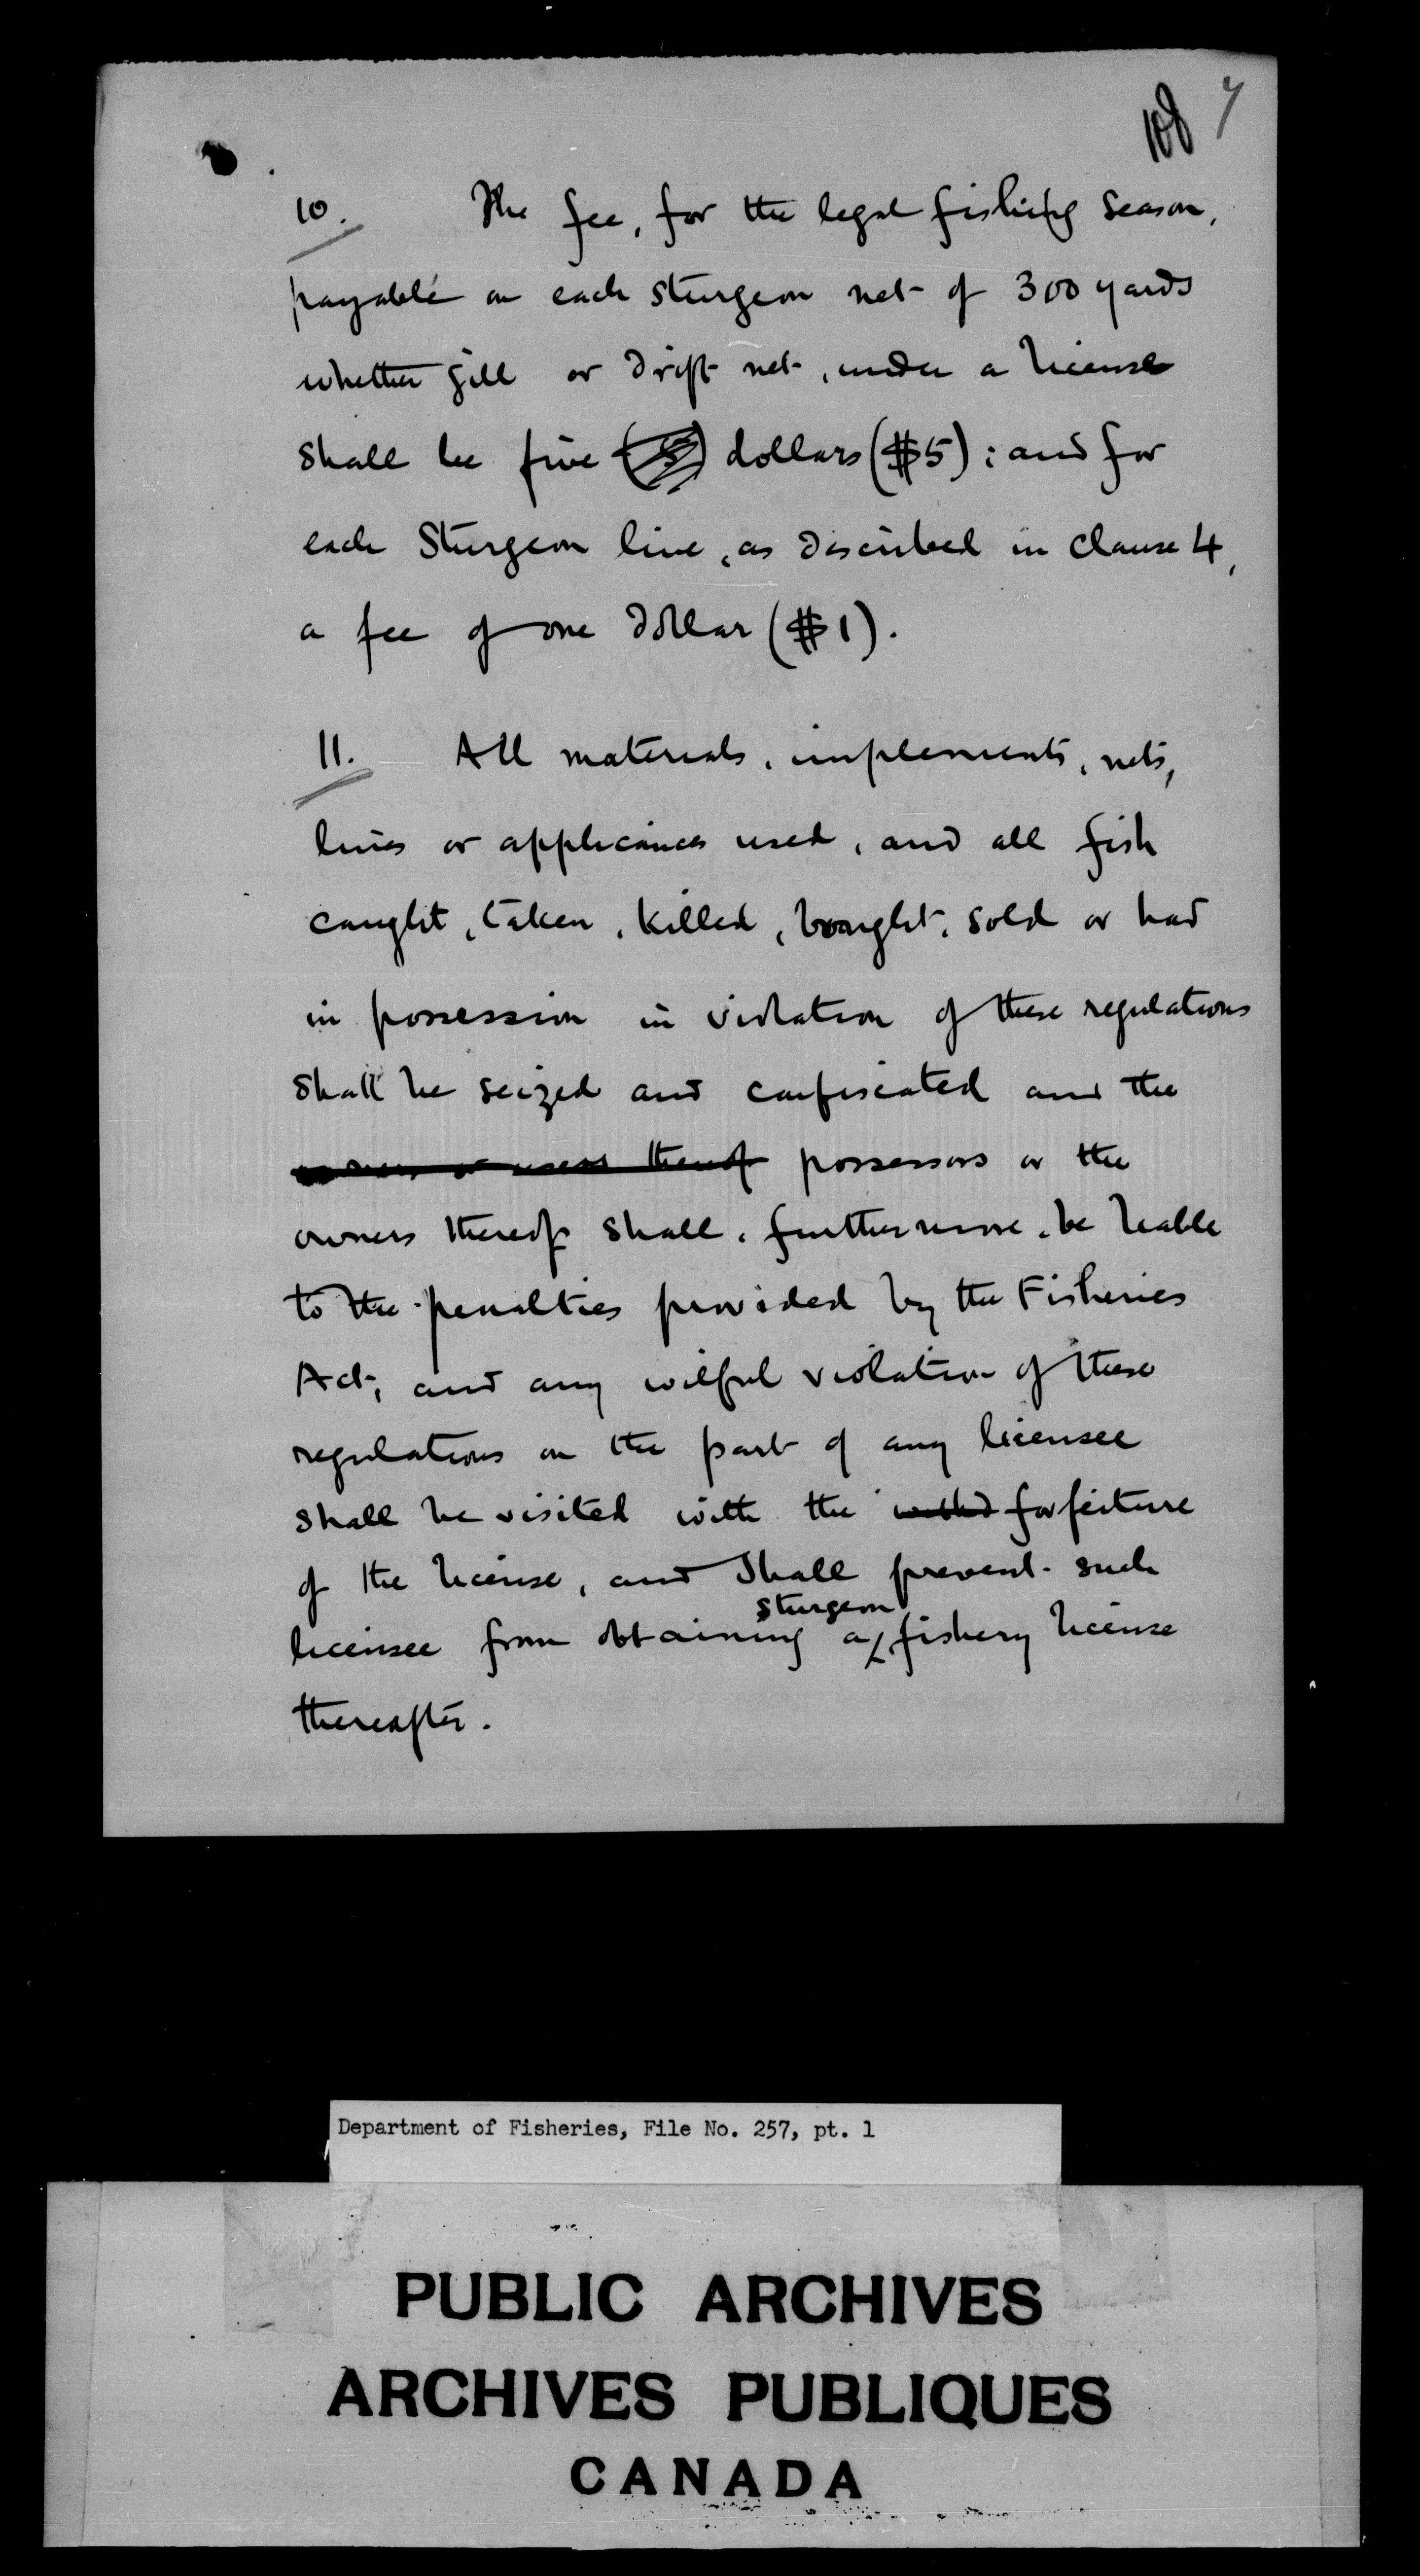 108 7
10. The fee, for the legal fishing season,
payable on each sturgeon net of 300 yards
whether gill or drift net, under a license
shall be five (5) dollars ($5); and for
each Sturgeon line, as described in clause 4,
a fee of one dollar ($1).
11. All materials, implements, nets,
lines or appliances used, and all fish
caught, taken, killed, bought, sold or had
in possession in violation of these regulations
shall be seized and confiscated and the
owners or users thereof possessors or the
owners thereof shall, furthermore, be liable
to the penalties provided by the Fisheries
Act, and any wilful violation of these
regulations on the part of any licensee
shall be visited with the forfeiture
of the license, and shall prevent such
sturgeon
licensee from obtaining a fishery license
thereafter.
Department of Fisheries, File No. 257, pt. 1
PUBLIC ARCHIVES
ARCHIVES PUBLIQUES
CANADA